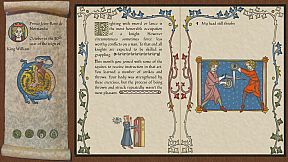 Prince Jean-René de
Normandie
October in the 80th
year of the reign of
King William
Fighting with sword or lance is
the most honorable occupation
of a knight. However
circumstances sometimes force less
worthy conflicts on a man. In that end all
knights are expected to be skilled at
grappling.
This month you joined with some of the
squires to receive instruction in that art.
You learned a number of strikes and
throws. Your body was strengthened by
these exercises, but the process of being
thrown and struck repeatedly wasn't the
most pleasant.
My head still throbs